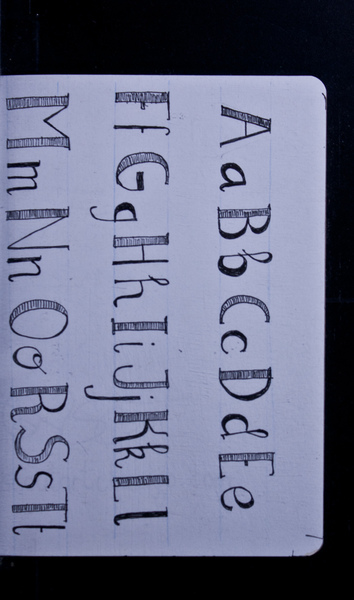 AaBbCcDdEe
FfGgHhIiJjKkLl
MmNnOoRSsTt